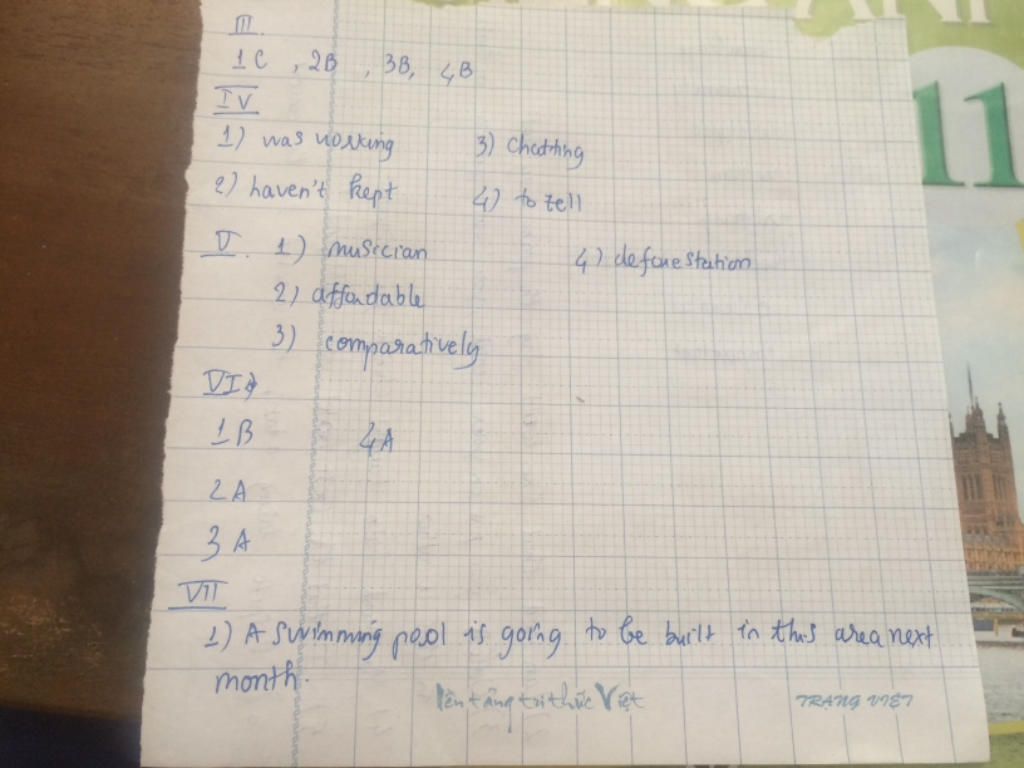 ANH
11
III.
1C , 2B , 3B, 4B
IV
1) was working 3) Chatting
2) haven't kept 4) to tell
V. 1) musician 4) deforestation
2) affordable
3) comparatively
VI
1B 4A
2A
3A
VII
1) A swimming pool is going to be built in this area next
month.
tri thức Việt TRANG VIET